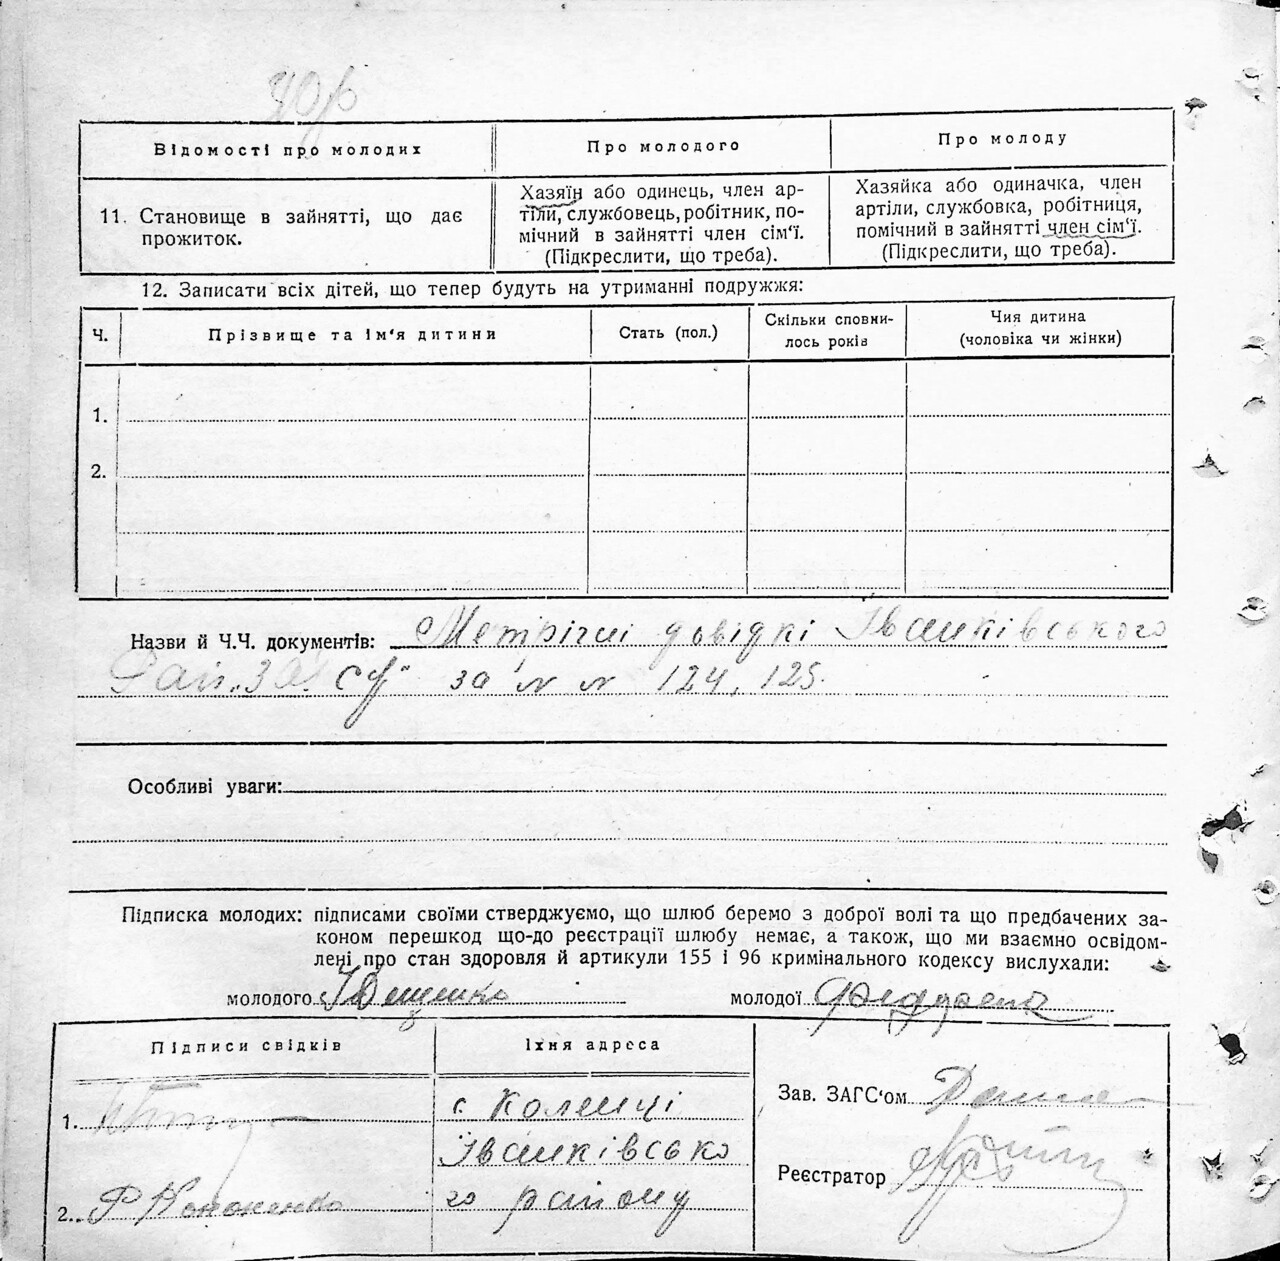 Відомості про молодих
Про молодого
Про молоду
11. Становище в зайнятті, що дає
прожиток.
Хазяїн або одинець, член ар-
тіли, службовець, робітник, по-
мічний в зайнятті член сім‘ї.
(Підкреслити, що треба).
Хазяйка або одиначка, член
артіли, службовка, робітниця,
помічний в зайнятті член сім‘ї.
(Підкреслити, що треба).
12. Записати всіх дітей, що тепер будуть на утриманні подружжя:
Ч.
Прізвище та ім‘я дитини
Стать (пол.)
Скільки сповни-
лось років
Чия дитина
(чоловіка чи жінки)
1.
2.
Назви й Ч.Ч. документів: Метрічні довідкі Іванківського
Рай. за N N 124, 125.
Особливі уваги:
Підписка молодих: підписами своїми стверджуємо, що шлюб беремо з доброї волі та що предбачених за-
коном перешкод що-до реєстрації шлюбу немає, а також, що ми взаємно освідом-
лені про стан здоровля й артикули 155 і 96 кримінального кодексу вислухали:
молодого
молодої
Підписи свідків
Їхня адреса
1.
с Коленці
Іванківсько
2. Р Кононенко
го району
Зав. ЗАГС‘ом
Реєстратор